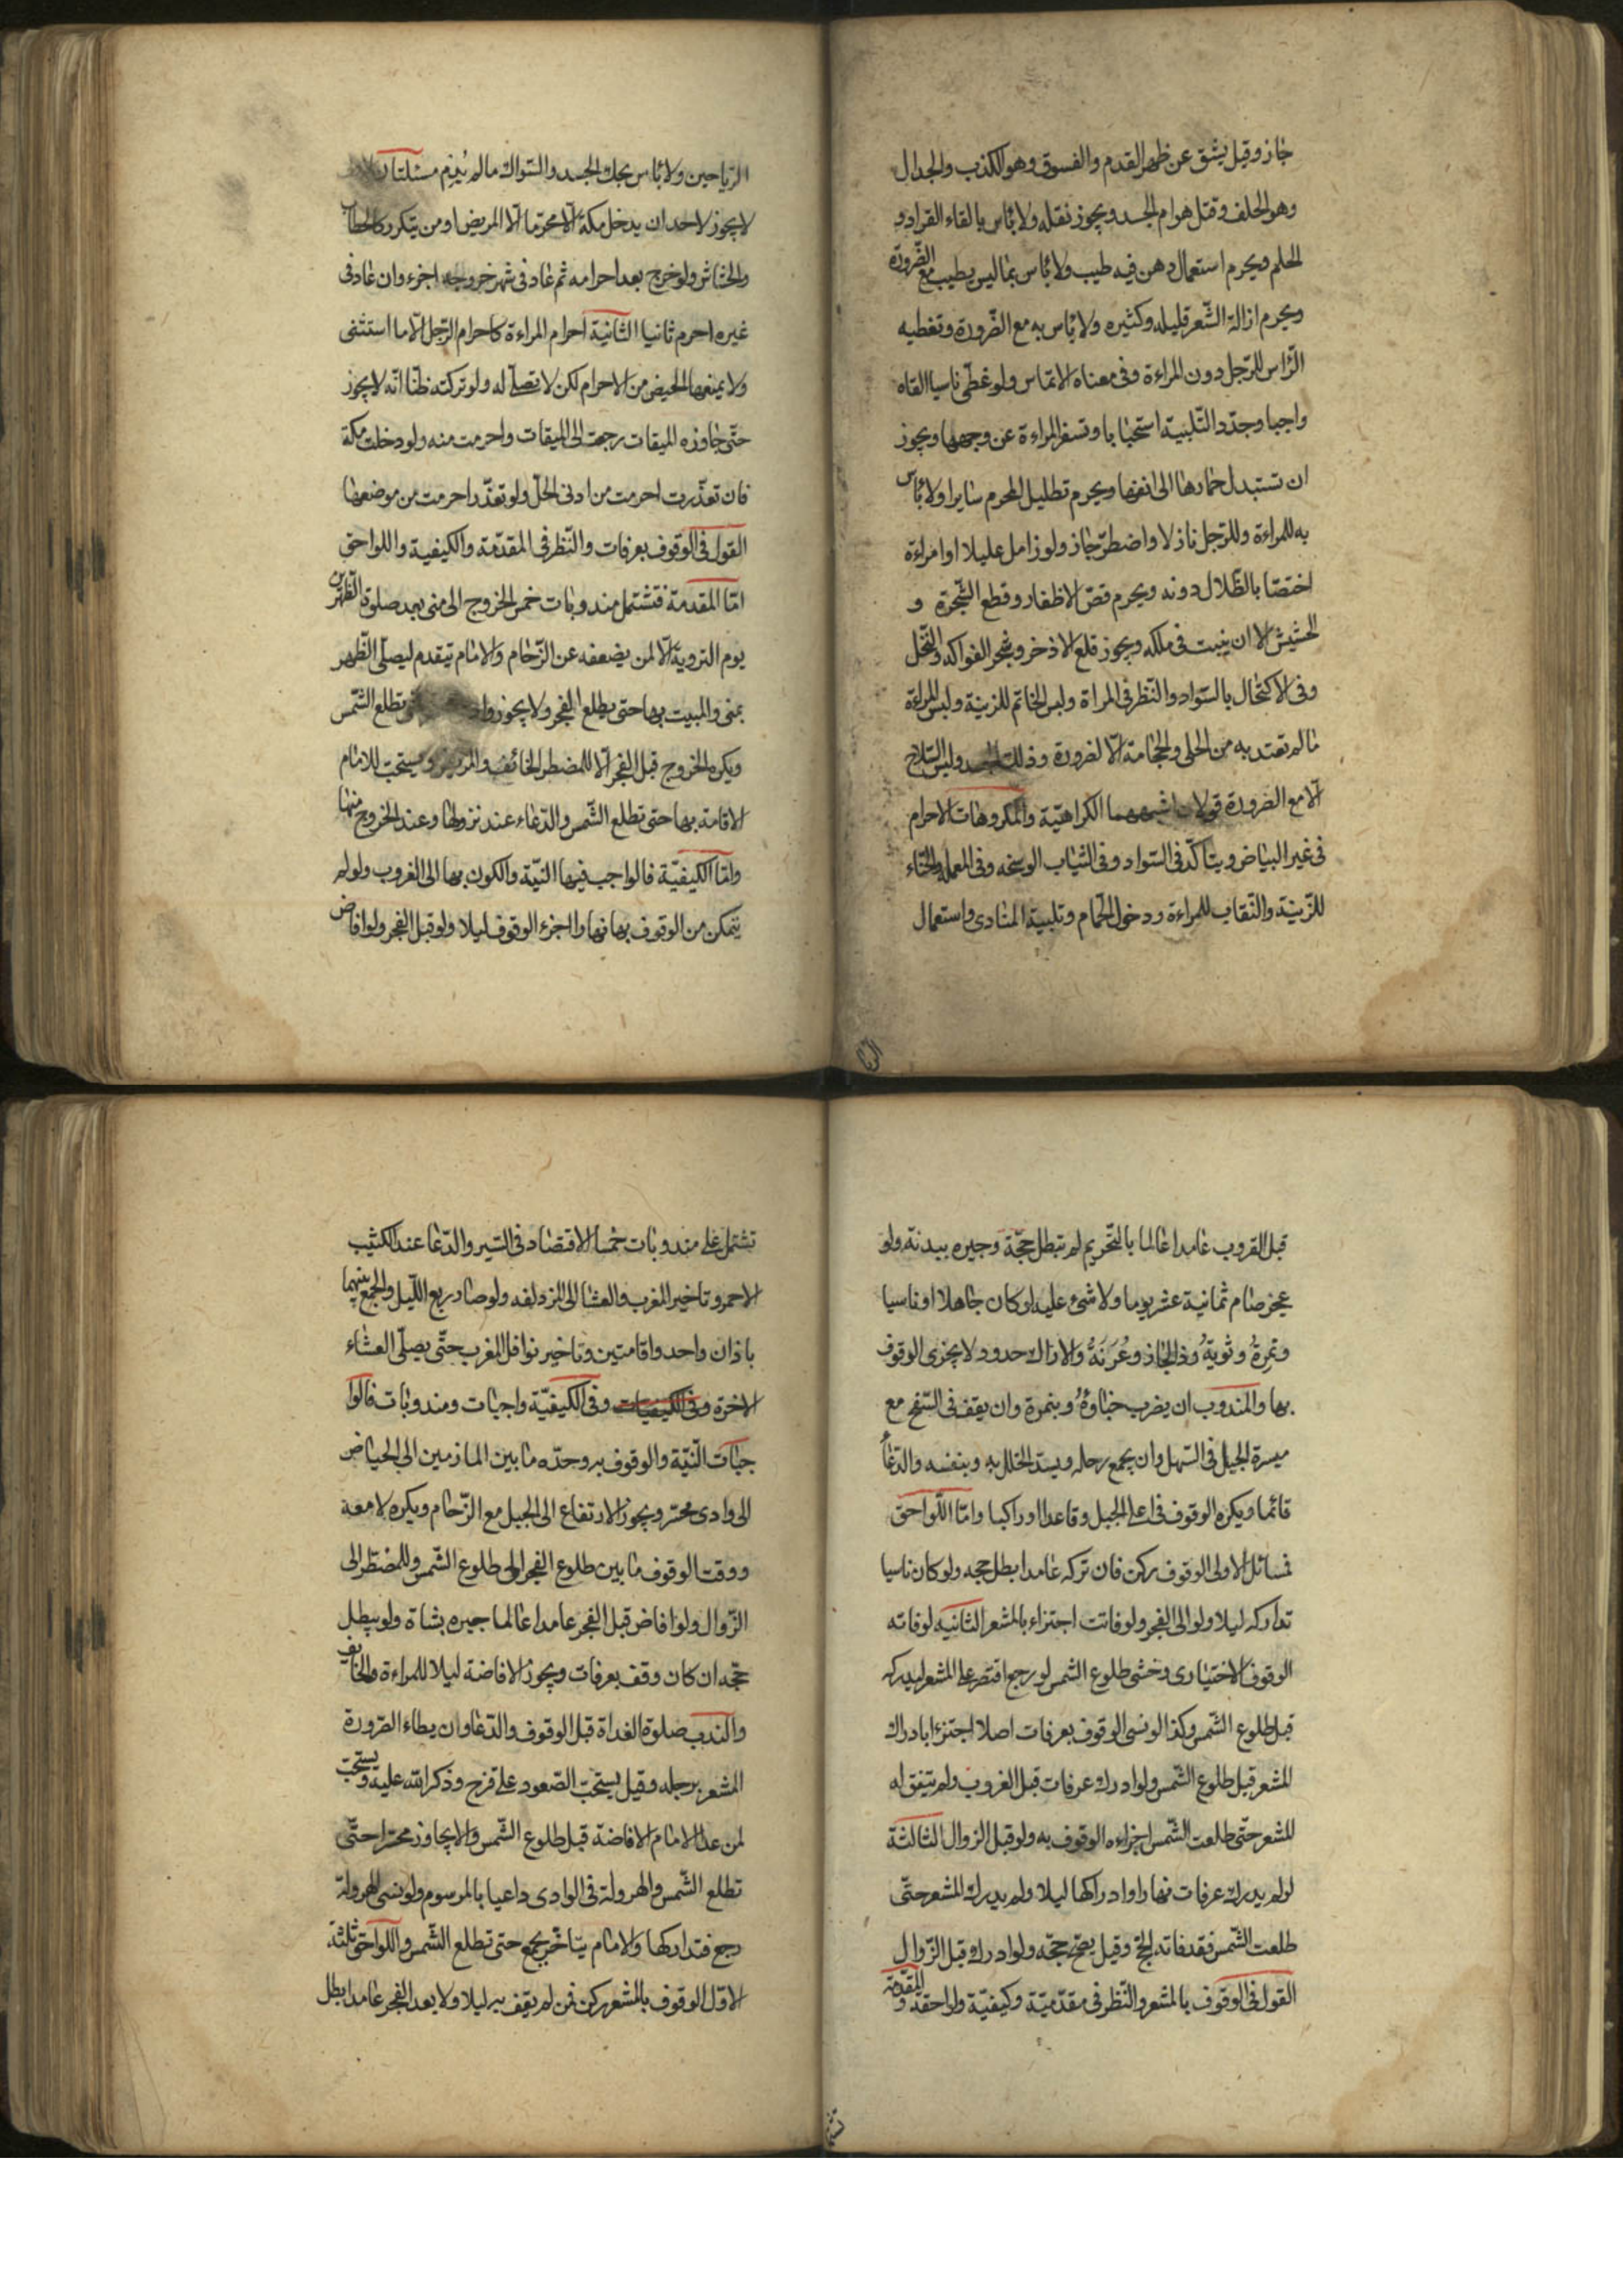 جاز وقيل يشق عن ظهر القدم والفسوق وهو الكذب والجدال
وهو الحلف وقتل هوام الجسد ويجوز نقله ولا باس بالقاء القراد و
الحلم ويحرم استعمال دهن فيه طيب ولا باس بما ليس بطيب مع الضرورة
ويحرم ازالة الشعر قليله وكثيره ولا باس به مع الضرورة وتغطيه
الرأس للرجل دون المراءة وفى معناه الاتماس ولو غطى ناسيا القاه
واجبا وجدد التلبية استحبابا وتسفر المراءة عن وجهها ويجوز
ان تستبدل خمارها الى انفها ويحرم تظليل المحرم سايرا ولا باس
به للمراءة وللرجل نازلا واضطر جاز ولو زامل عليلا او امراءة
اختصا بالظلال دونه ويحرم قص الاظفار وقطع الشجرة و
الحشيش الا ان ينبت فى ملكه ويجوز قلع الاذخر وشجر الفواكه والنخل
وفى الاكتحال بالسواد والنظر فى المراة ولبس الخاتم للزينة ولبس المراءة
ما لم تعتد به من الحلى والحجامة الا لضرورة وذلك الجسد ولبس السلاح
الا مع الضرورة قولان اشبههما الكراهية والمكروهات الاحرام
فى غير البياض ويتاكد فى السواد وفى الثياب الوسخه وفى المعلمه والحناء
للزينة والنقاب للمراءة ودخول الحمام وتلبية المنادى واستعمال
الريا
الرياحين ولا باس بحك الجسد والسواك ما لم يدم مسئلتان
لا يجوز لاحد ان يدخل مكة الا محرما الا المريض او من يتكرر كالحطاب
والحشاش ولو خرج بعد احرامه ثم عاد فى شهر خروجه اجزء وان عاد فى
غيره احرم ثانيا الثانية احرام المراءة كاحرام الرجل الا ما استثنى
ولا يمنعها الحيض من الاحرام لكن لا تصلى له ولو تركته ظنا انه لا يجوز
حتى جاوزه الميقات رجعت الى الميقات واحرمت منه ولو دخلت مكة
فان تعذرت احرمت من ادنى الحل ولو تعذر احرمت من موضعها
القول فى الوقوف بعرفات والنظر فى المقدمة والكيفية واللواحق
اما المقدمة فتشتمل مندوبات خمس الخروج الى منى بعد صلوة الظهرين
يوم التروية الا لمن يضعفه عن الزحام والامام يتقدم ليصلى الظهر
بمنى والمبيت بها حتى يطلع الفجر ولا يجوز واد تطلع الشمس
ويكره الخروج قبل الفجر الا للمضطر الخائف والمريض ويستحب للامام
الاقامة بها حتى تطلع الشمس والدعاء عند نزولها وعند الخروج منها
واما الكيفية فالواجب فيها النية والكون بها الى الغروب ولو لم
يتمكن من الوقوف بها نهارا اجزء الوقوف ليلا ولو قبل الفجر ولو افاض
قبل الغروب عامدا عالما بالتحريم لم تبطل حجة وجبره ببدنة ولو
عجز صام ثمانية عشر يوما ولا شئ عليه لو كان جاهلا او ناسيا
ونمرة وثوية وذالمجاز وعرنة والاراك حدود لا يجزى الوقوف
بها والمندوب ان يضرب خباوه وبنمرة وان يقف فى السفح مع
ميسرة الجبل فى السهل وان يجمع رحله ويسد الخلل به وبنفسه والدعا
قائما ويكره الوقوف فى اعلى الجبل وقاعدا او راكبا واما اللواحق
فمسائل الاولى الوقوف ركن فان تركه عامدا بطل حجه ولو كان ناسيا
تداركه ليلا ولو الى الفجر ولو فاتت اجتزاء بالمشعر الثانيه لو فاته
الوقوف الاختيارى وخشى طلوع الشمس لو رجع اقتصر على المشعر ليدركه
قبل طلوع الشمس وكذا لو نسى الوقوف بعرفات اصلا اجتزء ابادراك
المشعر قبل طلوع الشمس ولو ادرك عرفات قبل الغروب ولم يتفق له
المشعر حتى طلعت الشمس اجزاءه الوقوف به ولو قبل الزوال الثالثة
لو لم يدرك عرفات نهارا وادراكها ليلا ولم يدرك المشعر حتى
طلعت الشمس فقد فاته الحج وقيل يصح حجه ولو ادرك قبل الزوال
القول فى الوقوف بالمشعر والنظر فى مقدمية وكيفية ولواحقه والمقدمة
تشتمل على مندوبات خمسا الاقتصاد فى السير والدعا عند الكثيب
الاحمر وتاخير المغرب والعشا الى المزدلفه ولو صا ربع الليل والجمع بينهما
باذان واحد واقامتين وتاخير نوافل المغرب حتى يصلى العشاء
الاخرة وفى الكيفيات وفى الكيفية واجبات ومندوبات فالوا
جبات النية والوقوف به وحده ما بين المازمين الى الحياض
الى وادى محسر ويجوز الارتفاع الى الجبل مع الزحام ويكره لا معه
ووقت الوقوف ما بين طلوع الفجر الى طلوع الشمس وللمضطر الى
الزوال ولو افاض قبل الفجر عامدا عالما جبره بشاة ولو يبطل
حجه ان كان وقف بعرفات ويجوز الافاضة ليلا للمراءة والخايف
والندب صلوة الغداة قبل الوقوف والدعا وان يطاء الصرورة
المشعر برجله وقيل يستحب الصعود على قزح وذكر الله عليه ويستحب
لمن عدا الامام الافاضة قبل طلوع الشمس والا يجاوز محسرا حتى
تطلع الشمس والهرولة فى الوادى داعيا بالمرسوم ولو نسى الهرولة
رجع فتداركها والامام يتاخر بجمع حتى تطلع الشمس واللواحق ثلثة
الاول الوقوف بالمشعر ركن فمن لم يقف به ليلا ولا بعد الفجر عامدا بطل